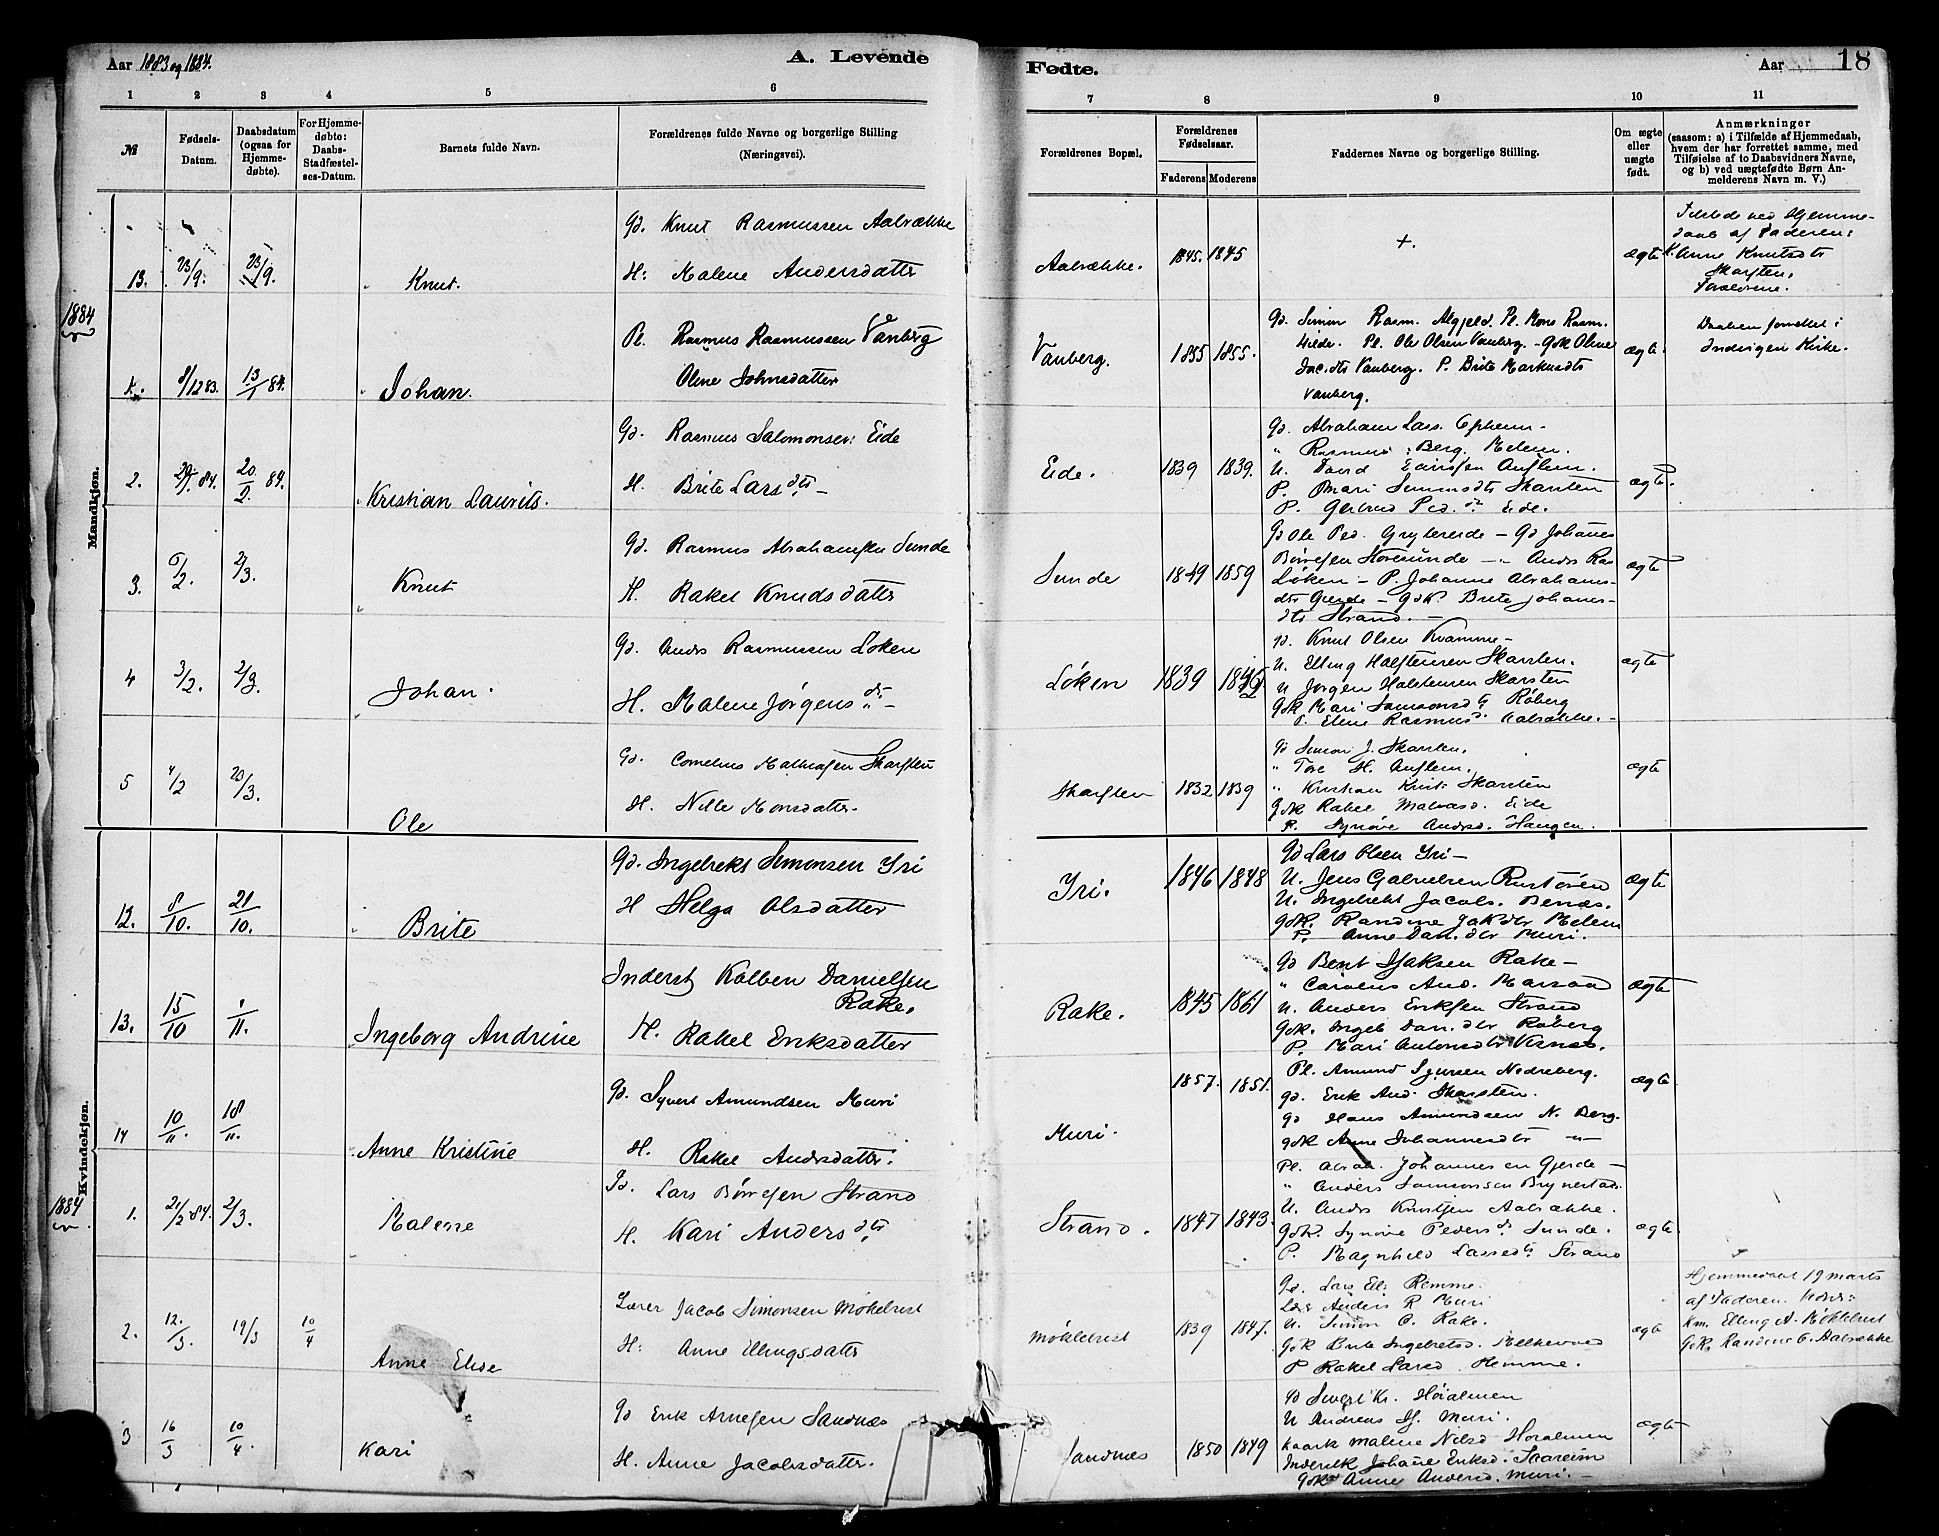 Aar 1883 og 1884.
A. Levende
Fødte.
Aar 18
1 2 3 4 5 6 7 8 9 10 11
№
Fødsels-Datum.
Daabsdatum (ogsaa for Hjemme-døbte).
For Hjemme-døbte: Daabs-Stadfæstel-ses-Datum.
Barnets fulde Navn.
Forældrenes fulde Navne og borgerlige Stilling (Næringsvei).
Forældrenes Bopæl.
Forældrenes Fødselsaar.
Faderens Moderens
Faddernes Navne og borgerlige Stilling.
Om ægte eller uægte født.
Anmærkninger
(saasom: a) i Tilfælde af Hjemmedaab,
hvem der har forrettet samme, med
Tilføielse af to Daabsvidners Navne,
og b) ved uægtefødte Børn An-
melderens Navn m. V.)
Mandkjøn.
13. 23/9. 23/9. Knut.
Gd. Knut Rasmussen Aalrække
H: Malene Andersdatter
Aalrække. 1845. 1845 +. ægte
Tilstede ved Hjemme-
daab af Faderen:
K. Anne Knutsdtr
Skarsten.
Forældrene.
1884
1. 8/12 83. 13/1 84. Johan.
Pl. Rasmus Rasmussen Vanberg
Oline Johnsdatter
Vanberg. 1855 1855.
Gd. Simon Rasm. Algjeld. Pl. Mons Rasm.
Hilde. Pl. Ole Olsen Vanberg. - Gdk Oline
Jac.dtr Vanberg. P. Brite Markusdtr
Vanberg.
ægte.
Daaben forrettet i
Indvigen Kirke.
2. 29/1. 84. 20/2. 84. Kristian Laurits.
Gd. Rasmus Salomonsen Eide
H. Brite Larsdtr -
Eide. 1839 1839.
Gd. Abraham Lass. Opheim -
" Rasmus Berg. Melem.
U. David
P. Mari Simonsdtr Skarsten
P. Gertrud Ped.dr Eide.
ægte.
3. 6/2. 2/3. Knut
Gd. Rasmus Abrahamsen Sunde
H. Rakel Knudsdatter
Sunde 1849 1859
Gd Ole Ped. Grytereide - Gd Johanes
Børresen Storesunde - " - Anders Ras
Løken - P. Johanne Abrahams-
dtr Gjerde - Gdk. Brite Johanes-
dtr Strand. -
ægte
4 3/2. 2/3. Johan.
Gd. Anders Rasmussen Løken
H. Malene Jørgensdtr -
Løken 1839
Gd. Knut Olsen Kvamme -
U. Elling Halstensen Skarsten.
U Jørgen Halstensen Skarsten
Gdk Mari Samsonsdtr Røberg
P. Eline Rasmusd. Aalrække. -
ægte
5 4/2 20/3. Ole
Gd. Cornelius Mathiasen Skarsten
H. Nille Monsdatter.
Skarsten 1832 1839
Gd Simon J. Skarsten.
" Tore H. Auflem.
" Kristian Knut. Skarsten
Gdk Rakel Matiasd. Eide
P. Synøve Andrsd. Haugen.
ægte
Kvindekjøn.
12. 8/10. 21/10. Brite
Gd. Ingebrekt Simonsen Yri
H Helga Olsdatter
Yri. 1846 1848
Gd Lars Olsen Yri -
U. Jens Gabrielsen Rustøen
U. Ingebrekt Jacobs. Benæs.
Gdk. Randine Jakdtr Melem
P. Anne Dan.dtr Muri.
ægte
13. 15/10 1/11. Ingeborg Andrine
Inderst Kolben Danielsen
Rake.
H. Rakel Eriksdatter
Rake. 1845 1861
Gd Bent Isaksen Rake -
" Carolus And. Marsaa
U. Anders Eriksen Strand
Gdk. Ingeb Dan.dtr Røberg
P. Mari Antonsdtr Visnæs.
ægte
14 10/11. 18/11. Anne Kristine
Gd. Syvert Amundsen Muri
H. Rakel Andrsdatter.
Muri. 1857. 1851.
Pl. Amund Sjursen Nedreberg.
Gd. Erik And. Skarsten.
Gd Hans Amundsen N. Berg.
Gdk Anne Johannesdtr - " -
ægte
1884
1. 21/2 84. 2/3. Malene
Gd. Lars Børresen Strand
H. Kari Andersdtr
Strand. 1847 1843.
Pl. Abrah. Johannesen Gjerde -
" Anders Samsonsen Brynestad.
U. Anders Knutsen Aalrække.
Gdk. Synøve Pedersd. Sunde.
P. Magnhild Lassedtr Strand
ægte.
2. 12/3. 19/3 10/4 Anne Elise
Lærer Jacob Simonsen Møkelrust
H. Anne Ellingsdatter
Møklebust 1839 1847.
Gd. Lars El. Remme.
Lær Anders R Muri
U. Simon C. Rake.
Gdk Brite Ingebretsd. Melkevold
P Rakel Larsd. Hemme.
ægte
Hjemmedøbt 19 marts
af Faderen. Vidner:
Km. Elling A. Møklebust
Gdk. Randine C. Aalrække
3 16/3 10/4. Kari
Gd Erik Arnesen Sandnæs
H. Anne Jacobsdatter.
Sandnæs 1850 1849
Gd Sivert Kr. Høialmen
U Andreas Sj. Muri.
Kaark Malene Nilsd Horalmen
Inderstk Johane Eriksd. Saareim
Gdk Anne Andersd. Muri. -
ægte